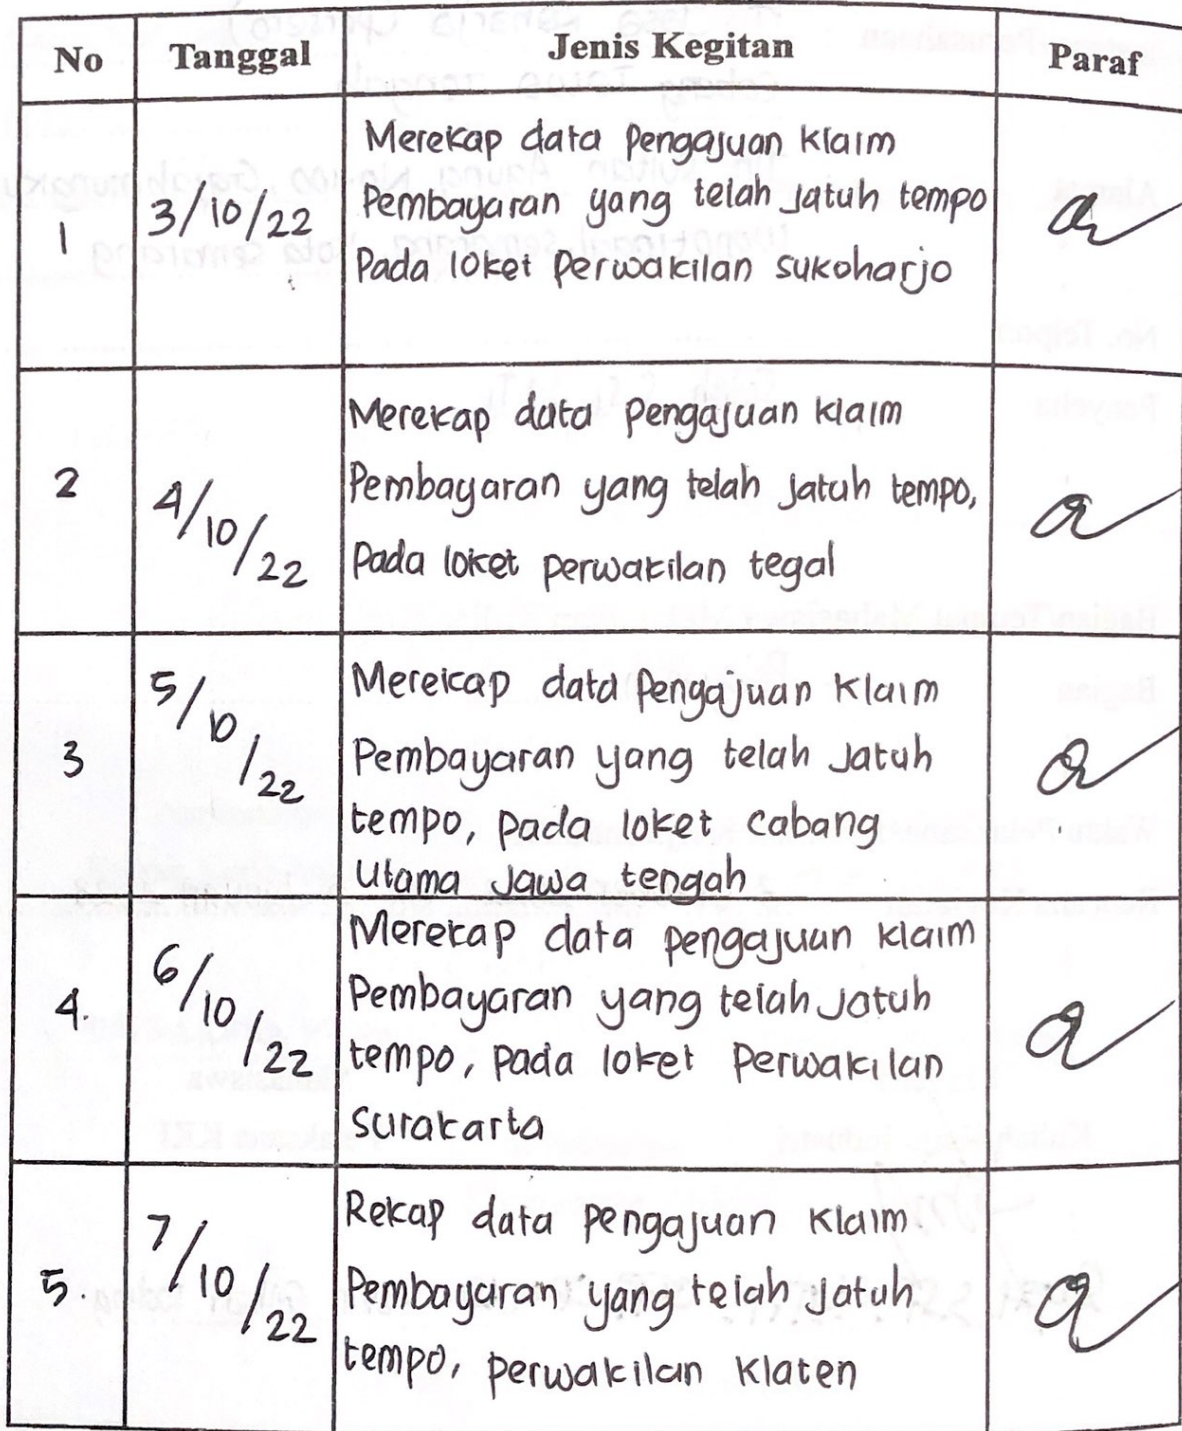 No Tanggal Jenis Kegitan Paraf
1 3/10/22 Merekap data Pengajuan Klaim
Pembayaran yang telah Jatuh tempo
Pada loket Perwakilan sukoharjo
2 4/10/22 Merekap data Pengajuan klaim
Pembayaran yang telah Jatuh tempo,
Pada loket perwakilan tegal
3 5/10/22 Merekap data Pengajuan Klaim
Pembayaran yang telah Jatuh
tempo, Pada loket Cabang
Utama Jawa tengah
4. 6/10/22 Merekap data Pengajuan klaim
Pembayaran yang telah Jatuh
tempo, Pada loket Perwakilan
Surakarta
5. 7/10/22 Rekap data Pengajuan Klaim
Pembayaran yang telah Jatuh
tempo, perwakilan Klaten